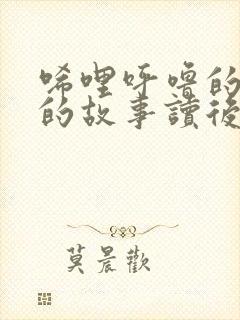 唏哩呼嚕的
的故事讀後
莫晨歡